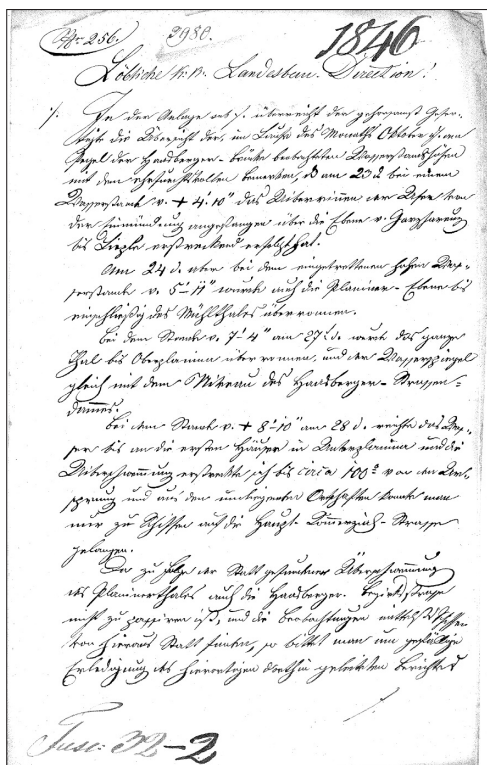 Nr. 256. 2980. 1846
Löbliche k. k. Landesbau-Direction!
In der Anlage überreicht der gehorsamst Gefer-
tigte die Übersicht der, im Laufe des Monaths Oktober an
Pegel der Haasberger-Brücke beobachteten Wasserstandshöhen
mit dem ehrfurchtsvollen bemerken, daß am 23d bei einem
Wasserstande v. + 4' 10" das Überrinnen der Ufer von
der angefangen über die Ebene v.
bis erstreckend erfolgt hat.
Am 24 d. aber bei dem eingetrettenen hohen Was-
serstande v. 5' 11" wurde auch die Planiner-Ebene bis
einschließig des Mühlthales überronnen.
Bei dem Stande v. 7' 4" am 27 d. wurde das ganze
Thal bis Oberplanina überronnen, und der Wasserspiegel
gleich mit dem Niveau des Haasberger-Strassen-
dammes.
Bei dem Stande v. + 8' 10" am 28 d. reichte das Was-
ser bis an die ersten Häuser in Unterplanina und die
Überschwemmung erstreckte sich bis circa 100° von dem
und aus den umliegenden Ortschaften konnte man
nur zu Schiffen auf die Haupt-Commerzial-Strasse
gelangen.
Da zu folge der Statt gefundenen Überschwemmung
des Planinerthales auch die Haasberger Bezirksstrasse
nicht zu passiren ist, und die Beobachtungen mittelst Schiffen
von hieraus Statt finden, so bittet man um gefällige
Erledigung des hierortigen dorthin geleiteten Berichtes
Fasc: 32-2